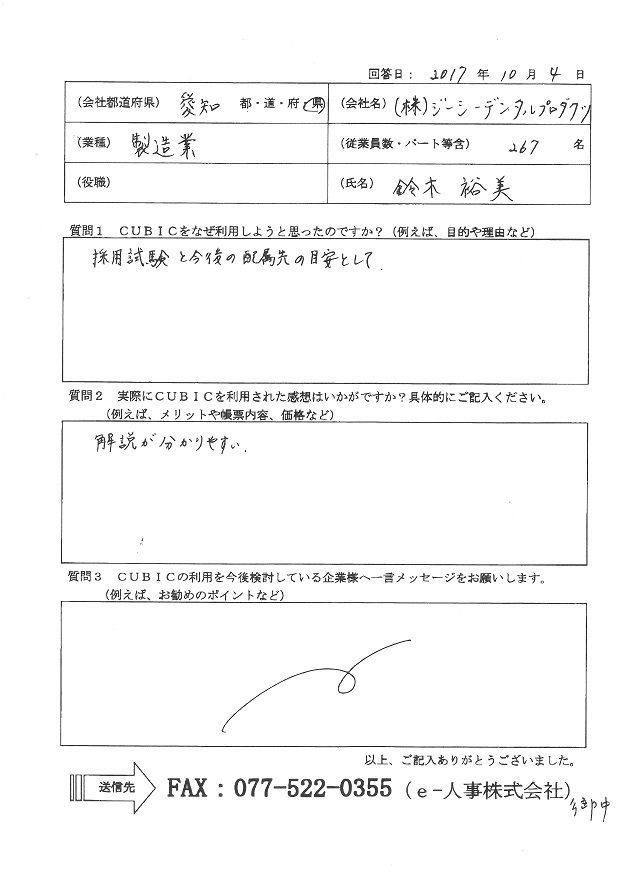 回答日： 2017 年 10 月 4 日
（会社都道府県） 愛知 都・道・府・県 （会社名） (株)ジーシーデンタルプロダクツ
（業種） 製造業 （従業員数・パート等含） 267 名
（役職） （氏名） 鈴木 裕美
質問１ ＣＵＢＩＣをなぜ利用しようと思ったのですか？（例えば、目的や理由など）
採用試験と今後の配属先の目安として.
質問２ 実際にＣＵＢＩＣを利用された感想はいかがですか？具体的にご記入ください。
（例えば、メリットや帳票内容、価格など）
解説が分かりやすい.
質問３ ＣＵＢＩＣの利用を今後検討している企業様へ一言メッセージをお願いします。
（例えば、お勧めのポイントなど）
以上、ご記入ありがとうございました。
送信先 FAX：077-522-0355（ｅ−人事株式会社）御中